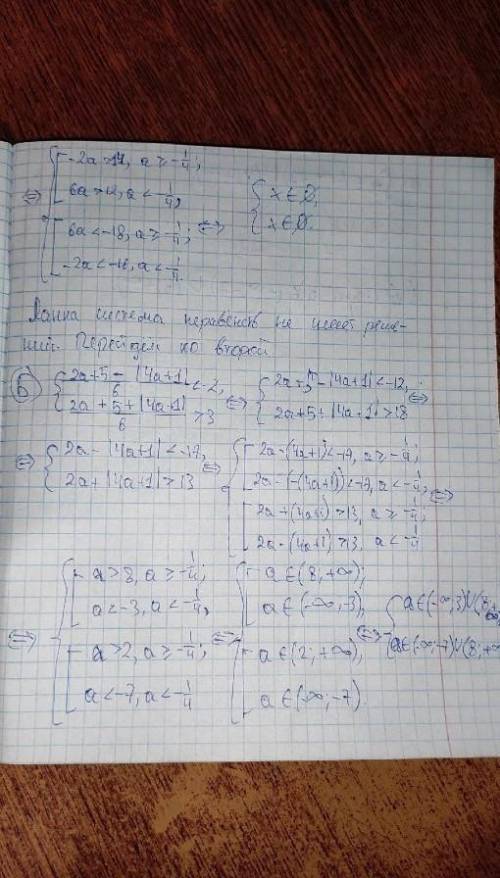 ⇔ { [ -2a > 17, a ≥ -1/4;
6a > 12, a < -1/4,
[ 6a < -18, a ≥ -1/4; ⇔ { x ∈ ∅,
-2a < -18, a < -1/4. x ∈ ∅.
Данна система неравенств не имеет реше-
ний. Перейдём ко второй
Б { (2a+5-|4a+1|)/6 < -2, ⇔ { 2a+5-|4a+1| < -12, ⇔
(2a+5+|4a+1|)/6 > 3 2a+5+|4a+1| > 18
⇔ { 2a-|4a+1| < -17, ⇔ { [ 2a-(4a+1) < -17, a ≥ -1/4;
2a+|4a+1| > 13 2a-(-(4a+1)) < -17, a < -1/4, ⇔
[ 2a+(4a+1) > 13, a ≥ -1/4;
2a-(4a+1) > 13, a < -1/4
⇔ { [ a > 8, a ≥ -1/4; ⇔ { [ a ∈ (8; +∞);
a < -3, a < -1/4, a ∈ (-∞; -3), ⇔ { a ∈ (-∞; 3) ∪ (8; +∞),
[ a > 2, a ≥ -1/4; [ a ∈ (2; +∞), a ∈ (-∞; -7) ∪ (8; +∞
a < -7, a < -1/4 a ∈ (-∞; -7).